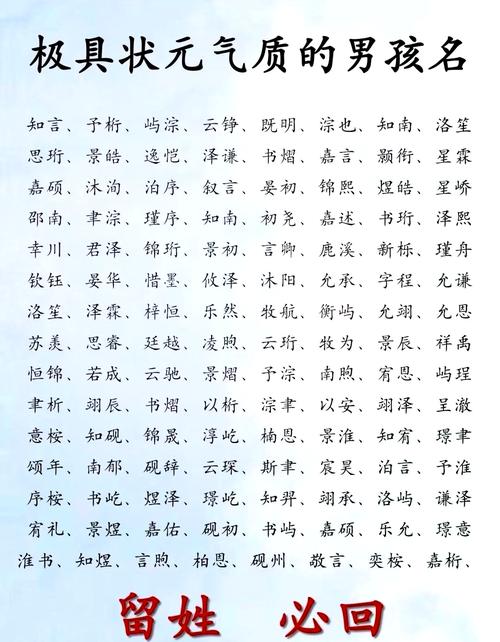 极具状元气质的男孩名
知言、予桁、屿淙、云铮、既明、淙也、知南、洛笙
思珩、景皓、逸恺、泽谦、书熠、嘉言、颢衔、星霖
嘉硕、沐洵、泊序、叙言、晏初、锦熙、煜皓、星峤
邵南、聿淙、瑾序、知南、初尧、嘉述、书珩、泽熙
幸川、君泽、锦珩、景初、言卿、鹿溪、新栎、瑾舟
钦钰、晏华、惜墨、攸泽、沐阳、允承、字程、允谦
洛笙、泽霖、梓恒、乐然、牧航、衡屿、允翊、允恩
苏羡、思睿、廷越、凌煦、云珩、牧为、景辰、祥禹
恒锦、若成、云驰、景熠、予淙、南煦、宥恩、屿珵
聿析、翊辰、书熠、以桁、淙聿、以安、翊泽、呈澈
意桉、知砚、锦晟、淳屹、楠恩、景淮、知宥、璟聿
颂年、南郁、砚辞、云琛、斯聿、宸昊、泊言、予淮
序桉、书屹、煜泽、璟屹、知羿、翊承、洛屿、谦泽
宥礼、景煜、嘉佑、砚初、书屿、嘉硕、乐允、璟意
淮书、知煜、言煦、柏恩、砚州、敬言、奕桉、嘉桁、
留姓 必回